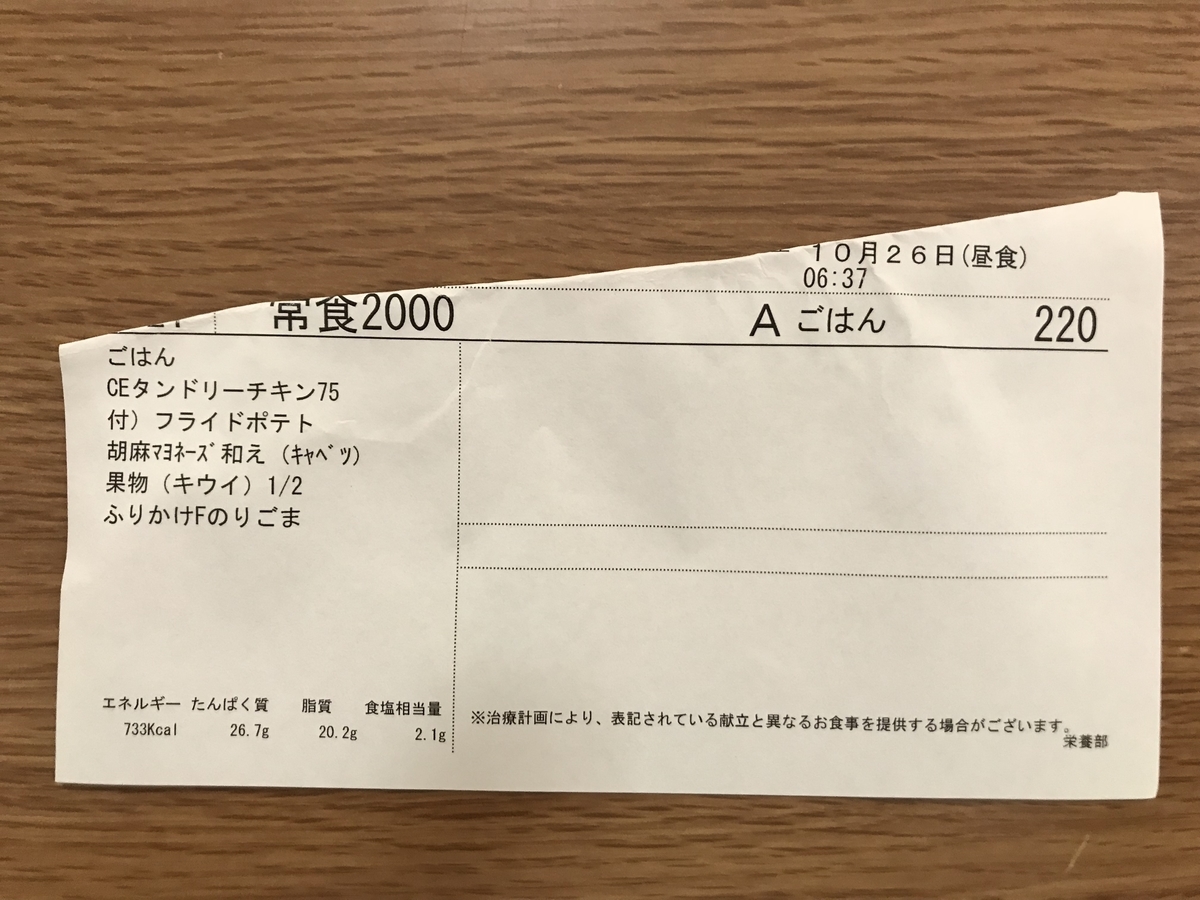 10月26日(昼食)
06:37
常食2000 A ごはん 220
ごはん
CEタンドリーチキン75
付）フライドポテト
胡麻ﾏﾖﾈｰｽﾞ和え（ｷｬﾍﾞﾂ）
果物（キウイ）1/2
ふりかけFのりごま
エネルギー たんぱく質 脂質 食塩相当量
733Kcal 26.7g 20.2g 2.1g
※治療計画により、表記されている献立と異なるお食事を提供する場合がございます。
栄養部